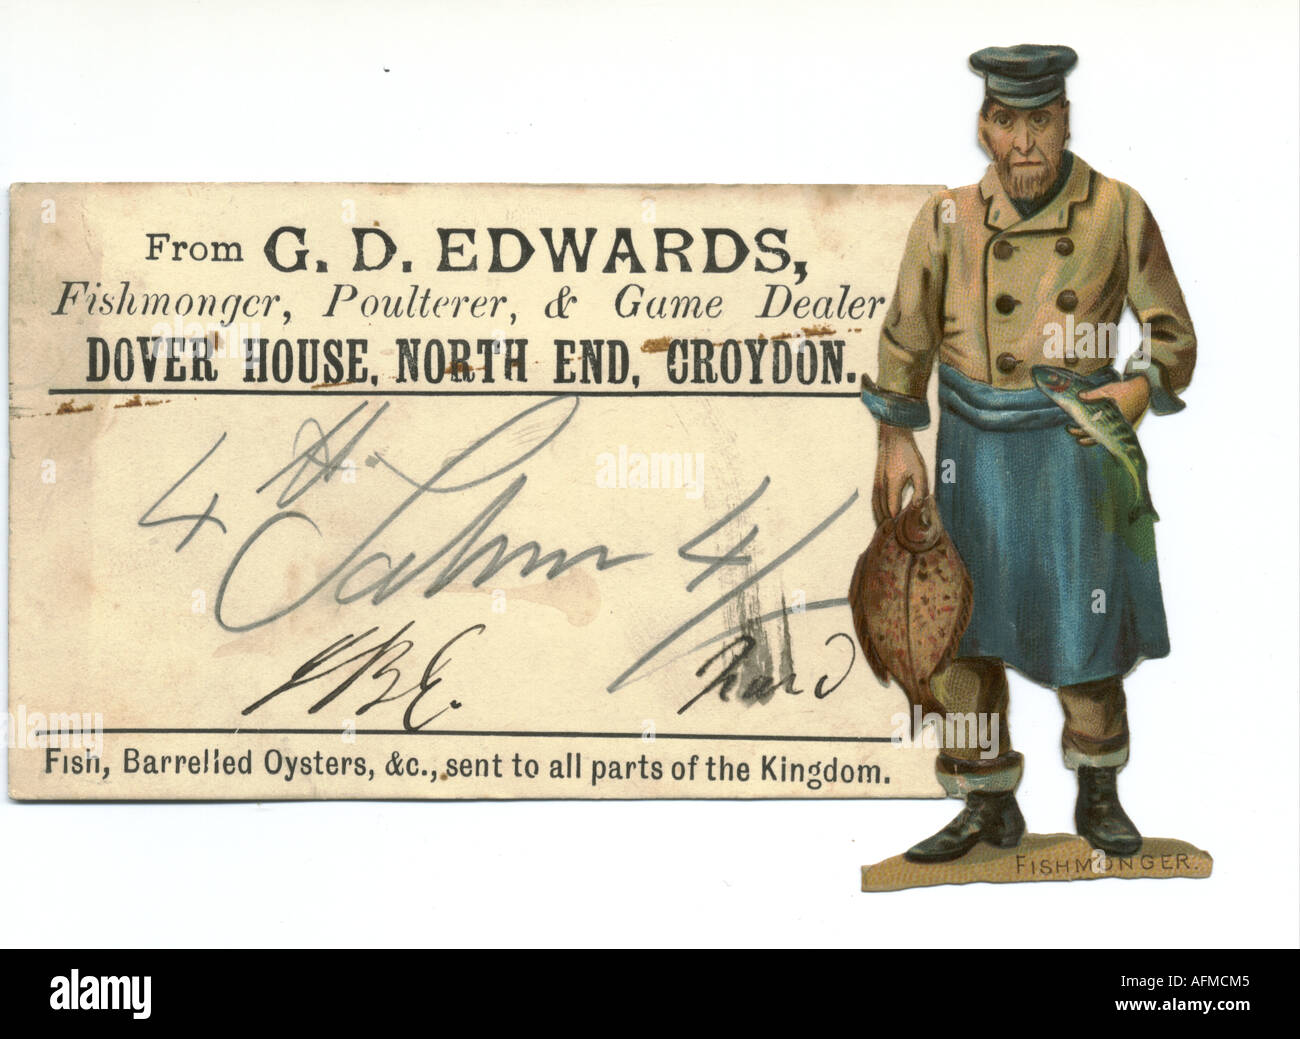 From G. D. EDWARDS,
Fishmonger, Poulterer, & Game Dealer
DOVER HOUSE, NORTH END, CROYDON.
4 lb
Salmon 4/
Fish, Barrelled Oysters, &c., sent to all parts of the Kingdom.
FISHMONGER.
alamy
Image ID: AFMCM5
www.alamy.com